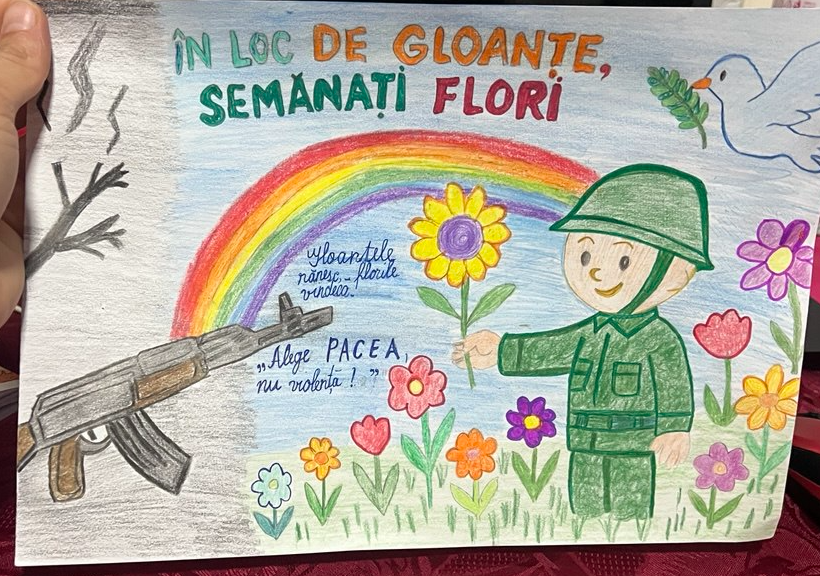 ÎN LOC DE GLOANȚE,
SEMĂNAȚI FLORI
Gloanțele
rănesc, florile
vindecă.
„Alege PACEA,
nu violență! ”